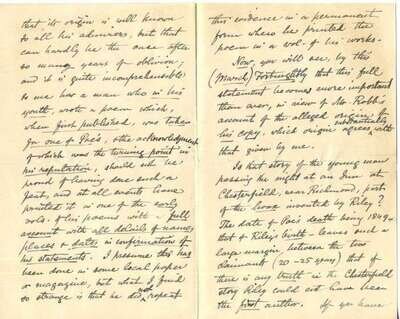 that its origin is well known
to all his admirers, but that
can hardly be the case after
so many years of oblivion;
and it is quite incomprehensible
to me how a man who in his
youth, wrote a poem which,
when first published, was taken
for one of Poe's, the acknowledgment
of which was the turning point in
his reputation, should not be
proud of having done such a
feat, and at all events have
printed it in one of the early
vols. of his poems with a full
account with all details of names,
places & dates in confirmation of
his statements. I presume this has
been done in some local paper
or magazine, but what I find
so strange is that he did not repeat
this evidence in a permanent
form where he printed the
poem in a vol. of his works.
Now, you will see, by this
(March) Fortnightly that this full
statement becomes more important
than ever, in view of Mr. Robb's
account of the alleged origin of
his copy, which origin agrees substantially with
that given by me.
Is that story of the young man
passing the night at an Inn at
Chesterfield, near Richmond, part
of the hoax invented by Riley?
The date of Poe's death being 1849 &
that of Riley's birth leaves such a
large margin between the two
claimants (20-25 years) that if
there is any truth in the Chesterfield
story Riley could not have been
the first author. If you have